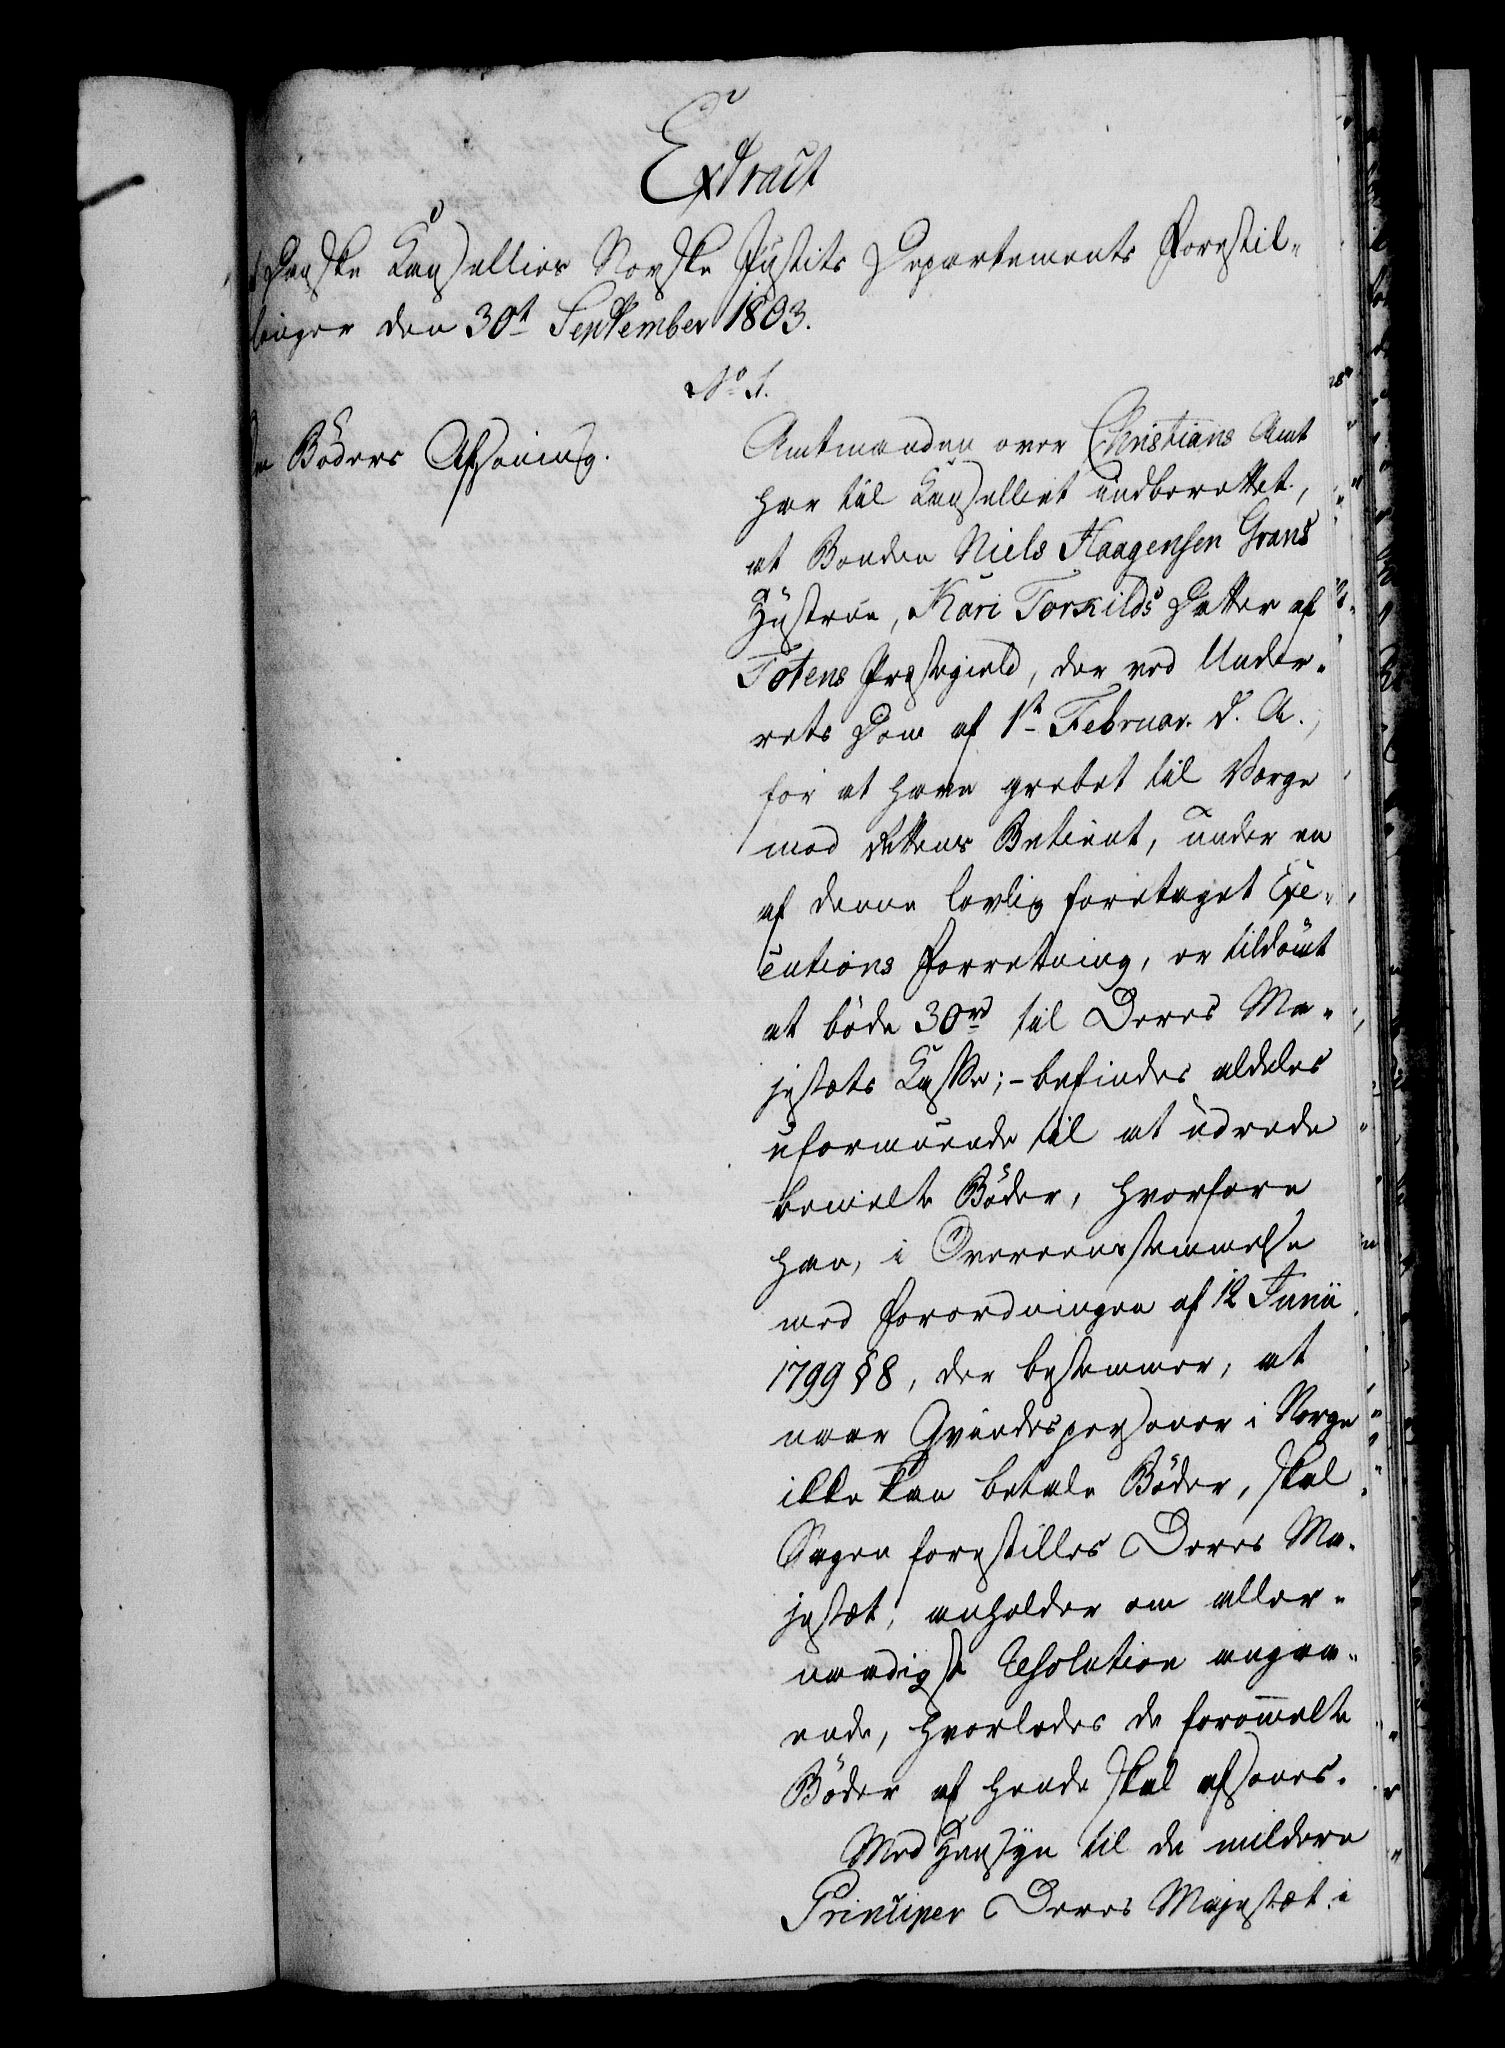 Extract
Danske Cancellies Norske Justits Departements Forestil-
linger den 30t September 1803.
No 1.
Böders Afsoning.
Amtmanden over Christians Amt
har til Cancelliet indberettet,
at Bonden Niels Haagensen Grans
Hustrue, Kari Torkilds Datter af
Totens Præstegield, der ved Under-
rets Dom af 1te Februar. d. A.,
for at have grebet til Værge
mod Rettens Betient, under en
af denne lovlig foretaget Exe-
cutions Forretning, er tildömt
at böde 30 rd til Deres Ma-
jestæts Kasse; - befindes aldeles
uformuende til at udrede
bemelte Böder, hvorfore
han, i Overeensstemmelse
med Forordningen af 12 Junii
1799 § 8, der bestemmer, at
naar Qvindespersoner i Norge
ikke kan betale Böder, skal
Sagen forestilles Deres Ma-
jestæt, anholder om aller-
naadigst Resolution angaa-
ende, hvorledes de forommelte
Böder af hende skal afsones.
Med Hensyn til de mildere
Principer Deres Majestæt i